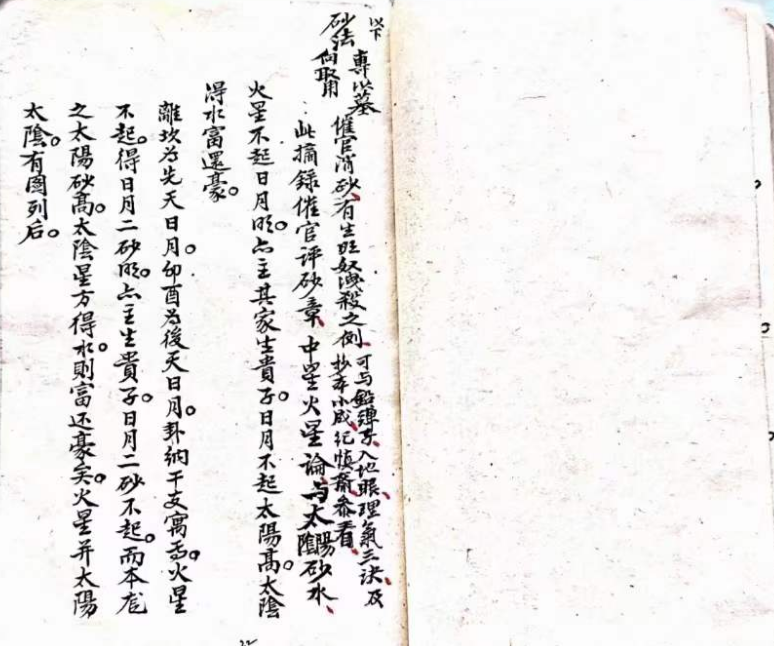 以下
砂法專以墓向取用
催官消砂、有生旺奴洩殺之例、可与鉛彈子、入地眼、理氣三訣、及抄本小成紀慎齋參看、
此摘錄催官評砂章、中星火星論、与太陽太陰砂水、
火星不起日月明。亦主其家生貴子。日月不起太陽高。太陰
得水富還豪。
離坎為先天日月。卯酉為後天日月。卦納干支寓焉。火星
不起。得日月二砂明。亦主生貴子。日月二砂不起。而本龙
之太陽砂高。太陰星方得水。則富还豪矣。火星并太陽
太陰。有图列后。